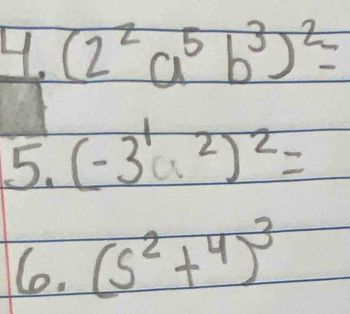 4. (2² a⁵ b³)² =
5. (-3¹a²)² =
6. (s² + ⁴)³